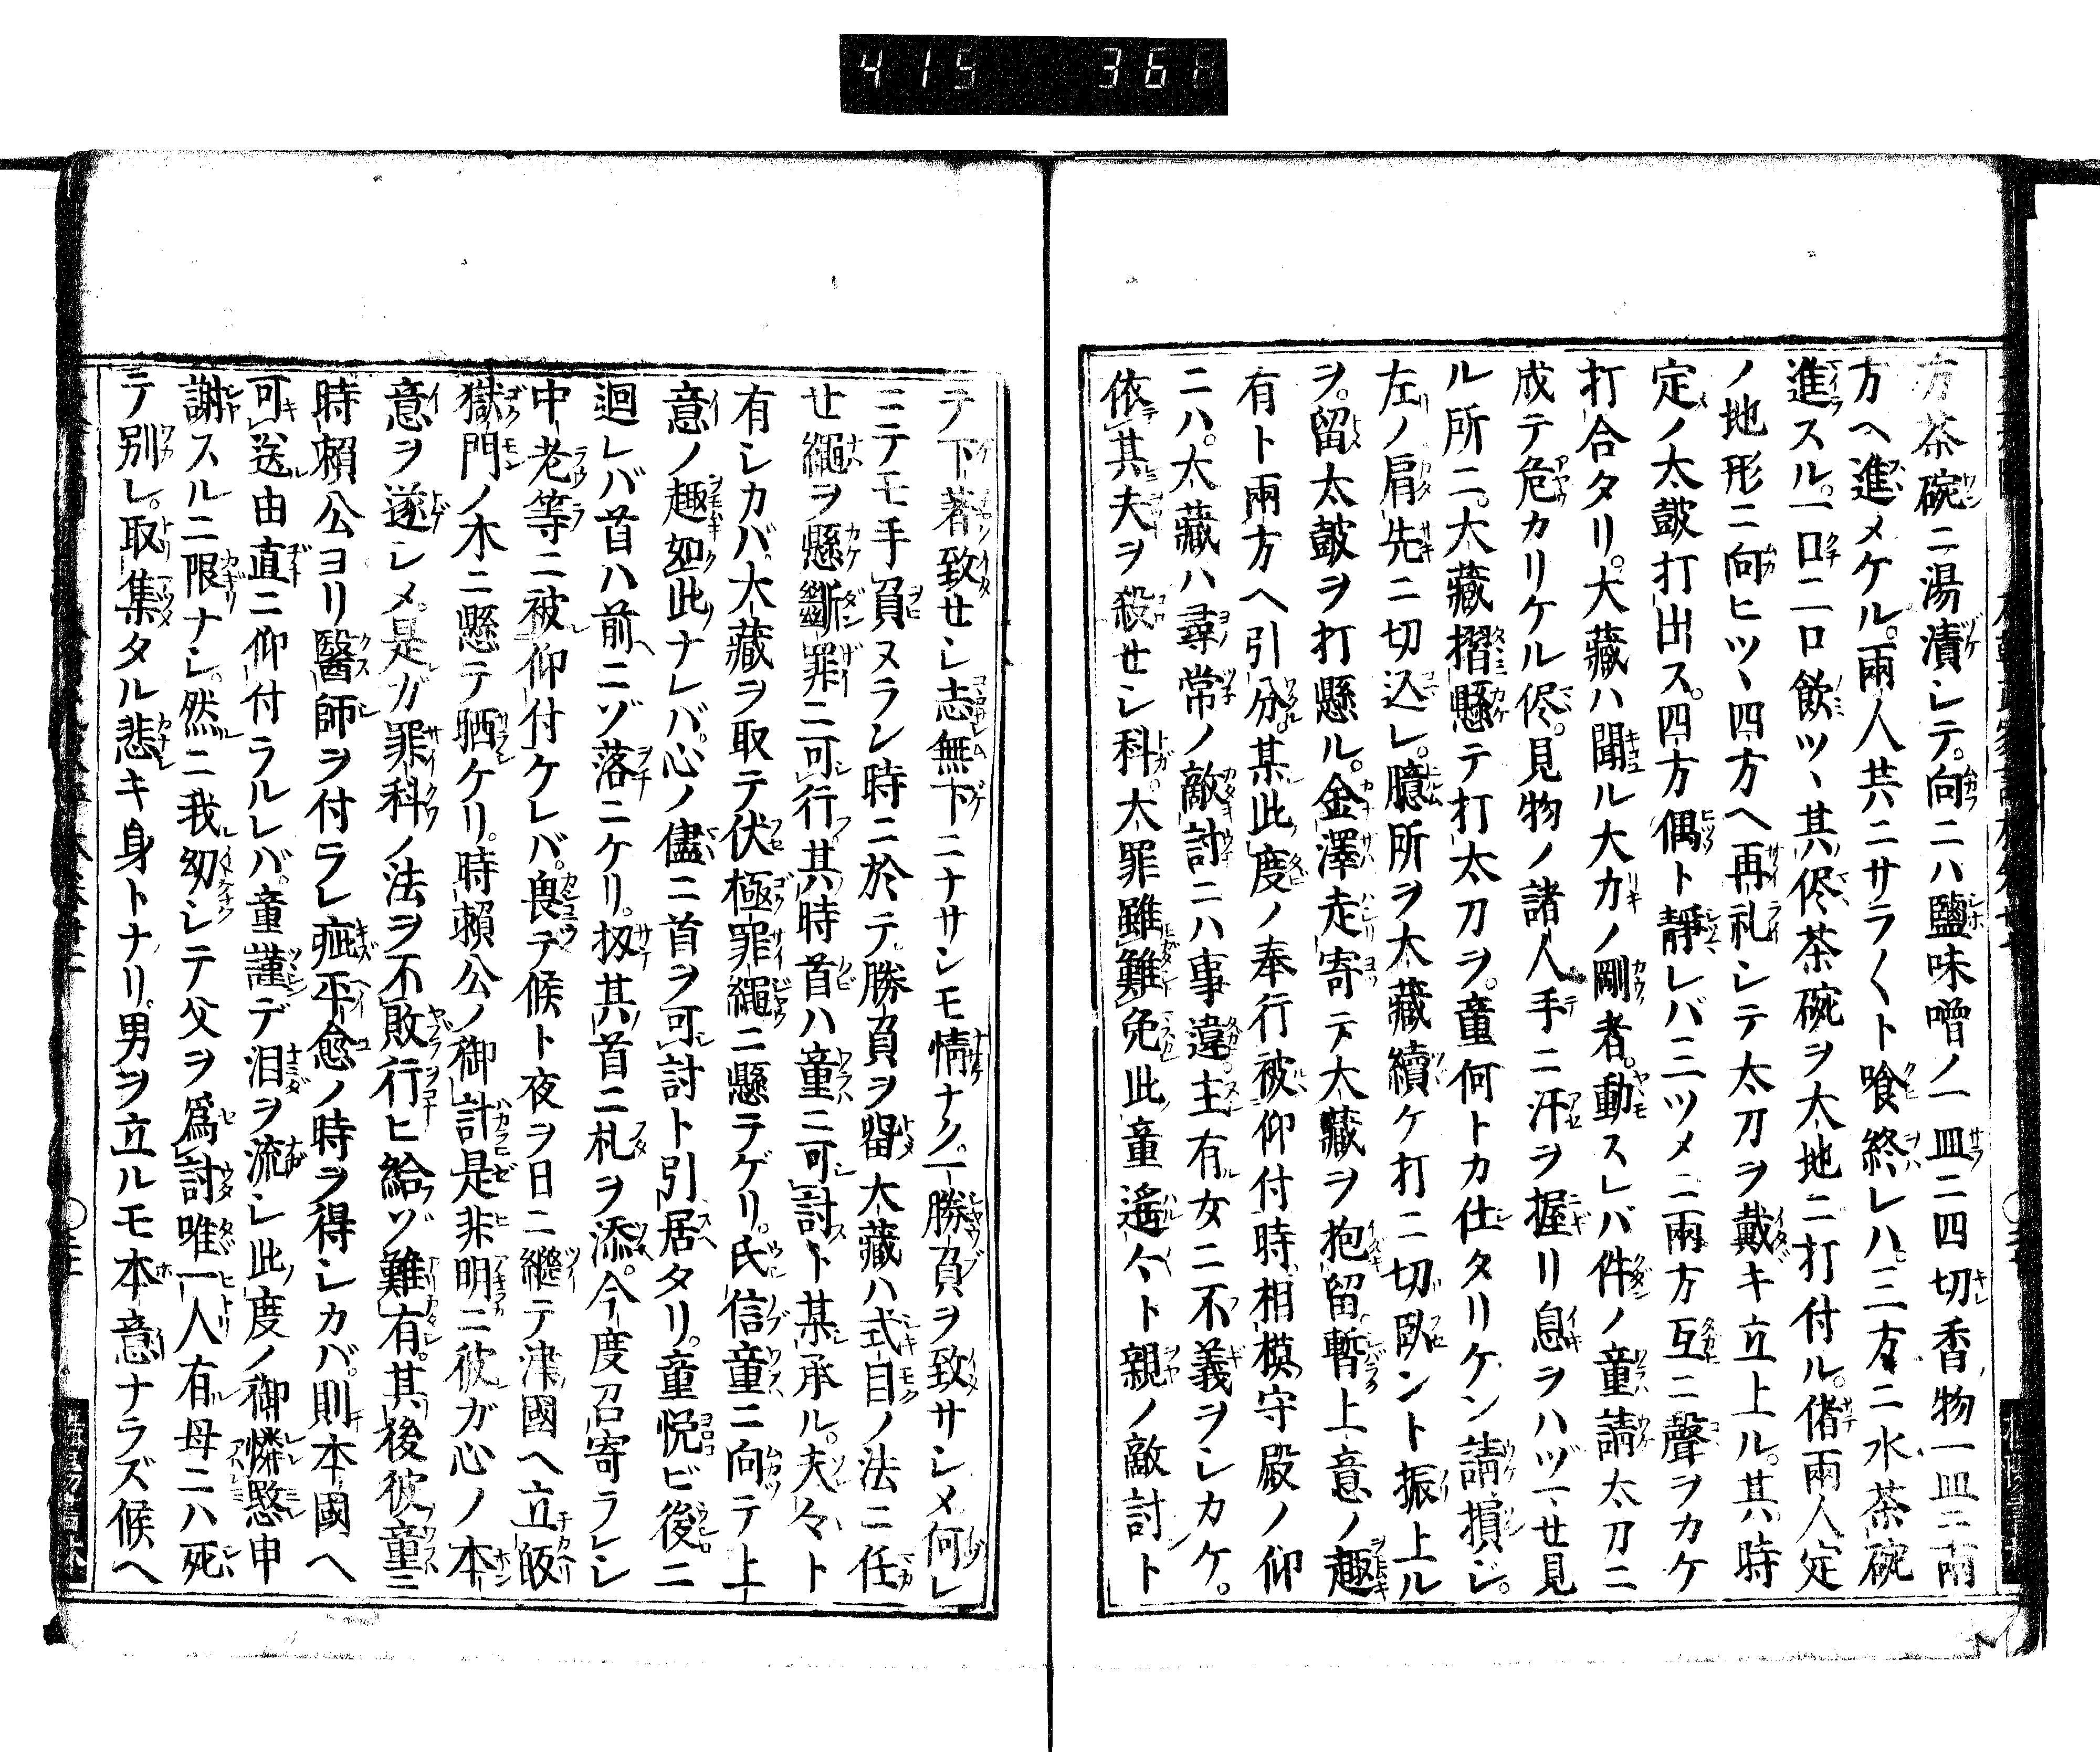 415 368
方茶碗ニ湯漬シテ。向ニハ鹽味噌ノ一皿ニ四切香物一皿ニ兩
方ヘ進メケル。兩人共ニサラ〱ト喰終レハ。三方ニ水茶碗
進スル。一口二口飲ツヽ其侭茶碗ヲ大地ニ打付ル。偖兩人定
ノ地形ニ向ヒツヽ四方ヘ再礼シテ太刀ヲ戴キ立上ル。其時
定ノ太鼓打出ス。四方偶ト靜レバ三ツメニ兩方互ニ聲ヲカケ
打合タリ。大藏ハ聞ル大力ノ剛者。動スレバ件ノ童請太刀ニ
成テ危カリケル侭。見物ノ諸人手ニ汗ヲ握リ息ヲハヅマせ見
ル所ニ。大藏摺懸テ打太刀ヲ。童何トカ仕タリケン請損ジ。
左ノ肩先ニ切込レ。臆所ヲ大藏續ケ打ニ切臥ント振上ル
ヲ。留太鼓ヲ打懸ル。金澤走寄テ大藏ヲ抱留暫上意ノ趣
有ト兩方ヘ引分。某此度ノ奉行被仰付時。相模守殿ノ仰
ニハ。大藏ハ尋常ノ敵討ニハ事違。主有女ニ不義ヲシカケ。
依其夫ヲ殺せシ科。大罪雖難免此童遙々ト親ノ敵討ト
テ下著致せシ志無下ニナサンモ情ナク。一勝負ヲ致サシメ何レ
ニテモ手負ヌラン時ニ於テ。勝負ヲ留大藏ハ式目ノ法ニ任
せ繩ヲ懸斷罪ニ可行。其時首ハ童ニ可討ト某承ル。夫々ト
有シカバ。大藏ヲ取テ伏極罪繩ニ懸テゲリ。氏信童ニ向テ上
意ノ趣如此ナレバ。心ノ儘ニ首ヲ可討ト引居タリ。童悦ビ後ニ
迴レバ首ハ前ニゾ落ニケリ。扨其首ニ札ヲ添。今度召寄ラレシ
中老等ニ被仰付ケレバ。畏テ候ト夜ヲ日ニ繼テ津國ヘ立皈
獄門ノ木ニ懸テ晒ケリ。時賴公ノ御計是非明ニ彼ガ心ノ本
意ヲ遂シメ。是ガ罪科ノ法ヲ不敗行ヒ給ゾ難有。其後彼童ニ
時賴公ヨリ醫師ヲ付ラレ疵平愈ノ時ヲ得シカバ。則本國ヘ
可送由直ニ仰付ラルレバ。童謹デ泪ヲ流シ此度ノ御憐愍申
謝スルニ限ナシ。然ニ我幼シテ父ヲ爲討唯一人有母ニハ死
テ別レ。取集タル悲キ身トナリ。男ヲ立ルモ本意ナラズ候ヘ